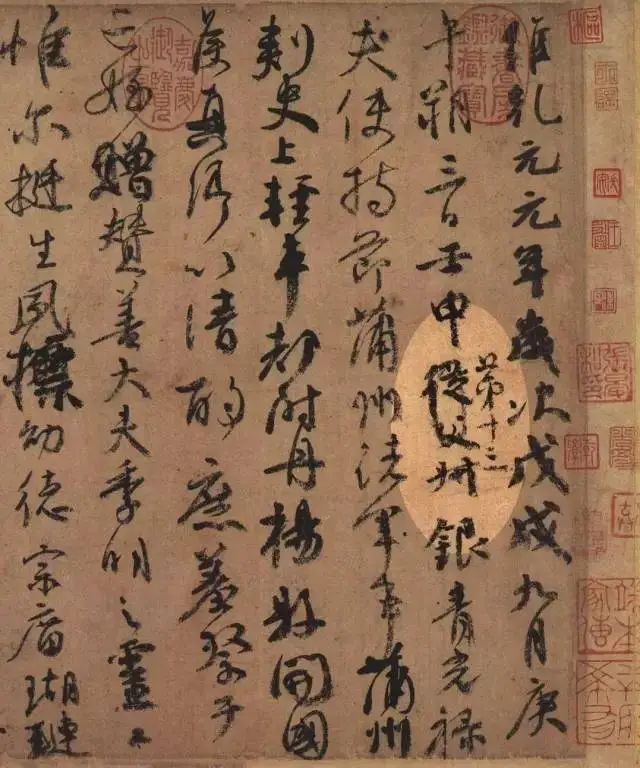 維乾元元年歲次戊戌九月庚
午朔三日壬申從父叔銀青光祿
第十三
夫使持節蒲州諸軍事蒲州
刺史上輕車都尉丹楊縣開國
侯真卿以清酌庶羞祭于
亡姪贈贊善大夫季明之靈曰
惟爾挺生夙標幼德宗廟瑚璉
御書房鑑藏寶
嘉慶御覽之寶